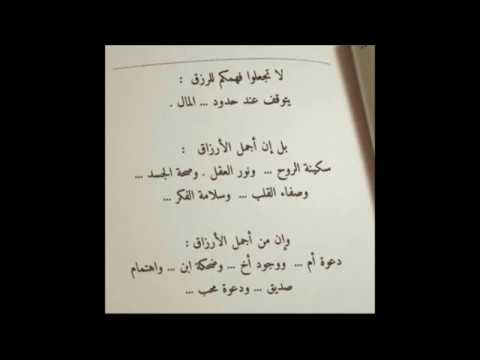 لا تجعلوا فهمكم للرزق :
يتوقف عند حدود ... المال .
بل إن أجمل الأرزاق :
سكينة الروح ... ونور العقل . وصحة الجسد ...
وصفاء القلب ... وسلامة الفكر ...
وإن من أجمل الأرزاق :
دعوة أم ... ووجود أخ ... وضحكة ابن ... واهتمام
صديق ... ودعوة محب ...